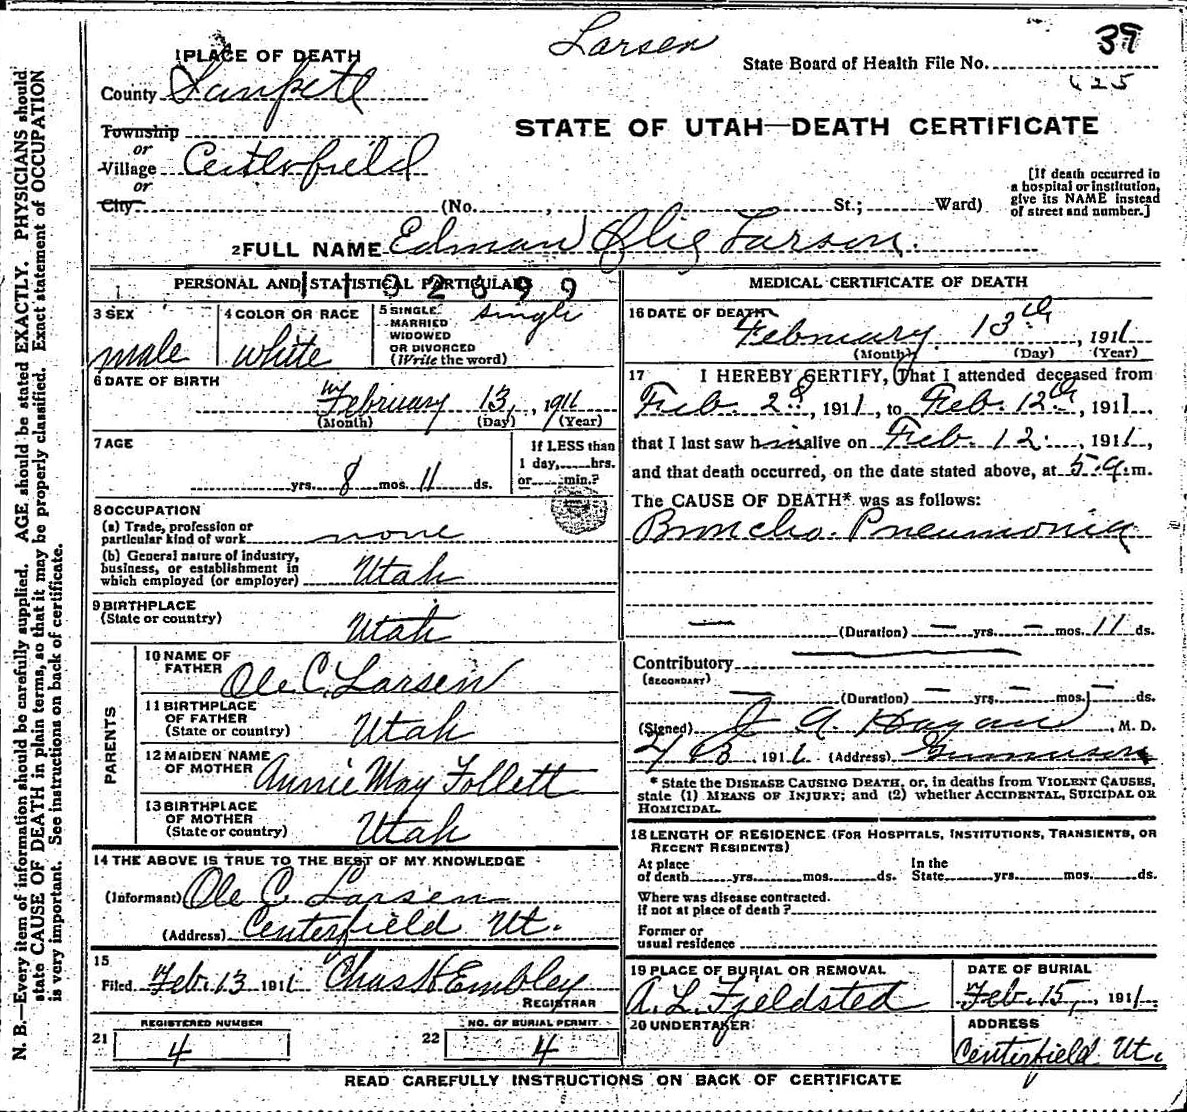 Larsen
39
1 PLACE OF DEATH
State Board of Health File No.
625
County Sanpete
STATE OF UTAH—DEATH CERTIFICATE
Township
or
Village Centerfield
or
City (No. , St.; Ward)
[If death occurred in a hospital or institution, give its NAME instead of street and number.]
2 FULL NAME Edman Larson.
PERSONAL AND STATISTICAL PARTICULARS
1102699
3 SEX male
4 COLOR OR RACE white
5 SINGLE, MARRIED WIDOWED OR DIVORCED (Write the word) single
6 DATE OF BIRTH
February 13, , 1911
(Month) (Day) (Year)
7 AGE
yrs. 8 mos. 11 ds.
If LESS than
1 day, hrs.
or min.?
8 OCCUPATION
(a) Trade, profession or
particular kind of work none
(b) General nature of industry,
business, or establishment in
which employed (or employer) Utah
9 BIRTHPLACE
(State or country) Utah
PARENTS
10 NAME OF
FATHER Ole C. Larsen
11 BIRTHPLACE
OF FATHER
(State or country) Utah
12 MAIDEN NAME
OF MOTHER Annie May Follett
13 BIRTHPLACE
OF MOTHER
(State or country) Utah
14 THE ABOVE IS TRUE TO THE BEST OF MY KNOWLEDGE
(Informant) Ole C. Larsen
(Address) Centerfield Ut.
15
Filed Feb. 13 1911 Chas H Embley
REGISTRAR
REGISTERED NUMBER
21 4
NO. OF BURIAL PERMIT
22 4
MEDICAL CERTIFICATE OF DEATH
16 DATE OF DEATH
February 13th , 1911
(Month) (Day) (Year)
17 I HEREBY CERTIFY, That I attended deceased from
Feb. 2d , 1911, to Feb. 12th , 1911
that I last saw him alive on Feb. 12. , 1911,
and that death occurred, on the date stated above, at 5 a.m.
The CAUSE OF DEATH* was as follows:
Broncho. Pneumonia
(Duration) — yrs. — mos. 11 ds.
Contributory
(SECONDARY)
(Duration) — yrs. — mos. — ds.
(Signed) J A Hagan , M. D.
2/13 1911 (Address) Gunnison
* State the DISEASE CAUSING DEATH, or, in deaths from VIOLENT CAUSES,
state (1) MEANS OF INJURY; and (2) whether ACCIDENTAL, SUICIDAL OR
HOMICIDAL.
18 LENGTH OF RESIDENCE (FOR HOSPITALS, INSTITUTIONS, TRANSIENTS, OR
RECENT RESIDENTS)
At place
of death yrs. mos. ds.
In the
State yrs. mos. ds.
Where was disease contracted.
if not at place of death?
Former or
usual residence
19 PLACE OF BURIAL OR REMOVAL
A. L. Fjeldsted
DATE OF BURIAL
Feb. 15, , 1911
20 UNDERTAKER
ADDRESS
Centerfield Ut.
READ CAREFULLY INSTRUCTIONS ON BACK OF CERTIFICATE
N. B.—Every item of information should be carefully supplied. AGE should be stated EXACTLY. PHYSICIANS should
state CAUSE OF DEATH in plain terms, so that it may be properly classified. Exact statement of OCCUPATION
is very important. See instructions on back of certificate.